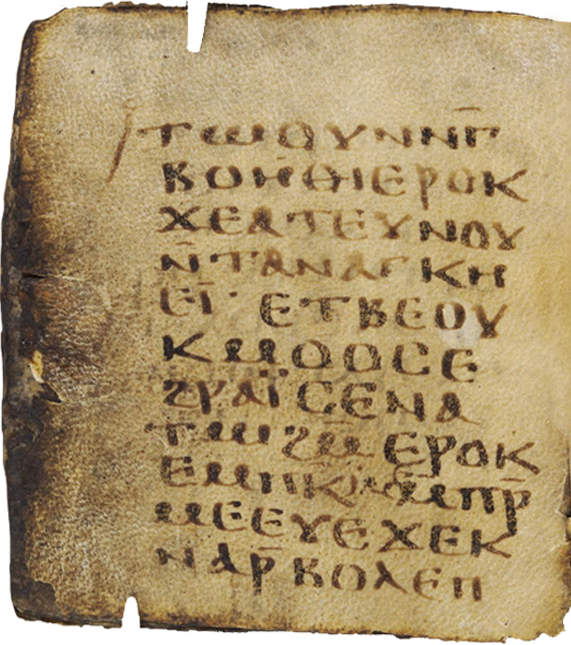 ⲧⲱⲟⲩⲛⲛⲅ̄
ⲃⲟⲏⲑⲓⲉⲣⲟⲕ
ϫⲉⲁⲧⲉⲩⲛⲟⲩ
ⲛ̄ⲧⲁⲛⲁⲅⲕⲏ
ⲉⲓ̈· ⲉⲧⲃⲉⲟⲩ
ⲕⲙⲟⲟⲥⲉ
ϩⲣⲁⲓ̈ ⲥⲉⲛⲁ
ⲧⲱϩⲙ̄ ⲉⲣⲟⲕ
ⲙⲡⲣ̄
ⲙⲉⲉⲩⲉϫⲉⲕ
ⲛⲁⲣ̄ⲃⲟⲗⲉⲡ